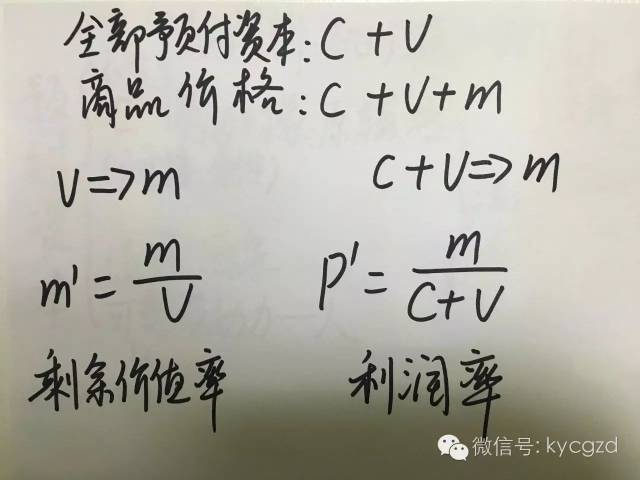 全部预付资本: C + V
商品价格: C + V + m
V => m
C + V => m
m' = m/V
P' = m/(C+V)
剩余价值率
利润率
微信号: kycgzd